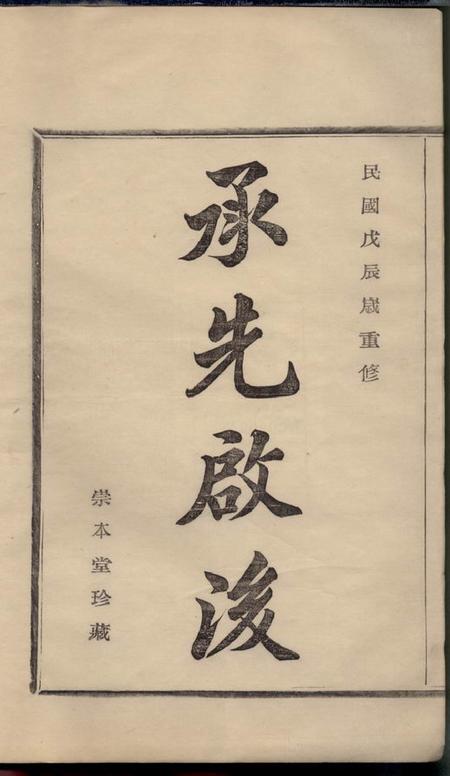 民國戊辰歲重修
承先啟後
崇本堂珍藏